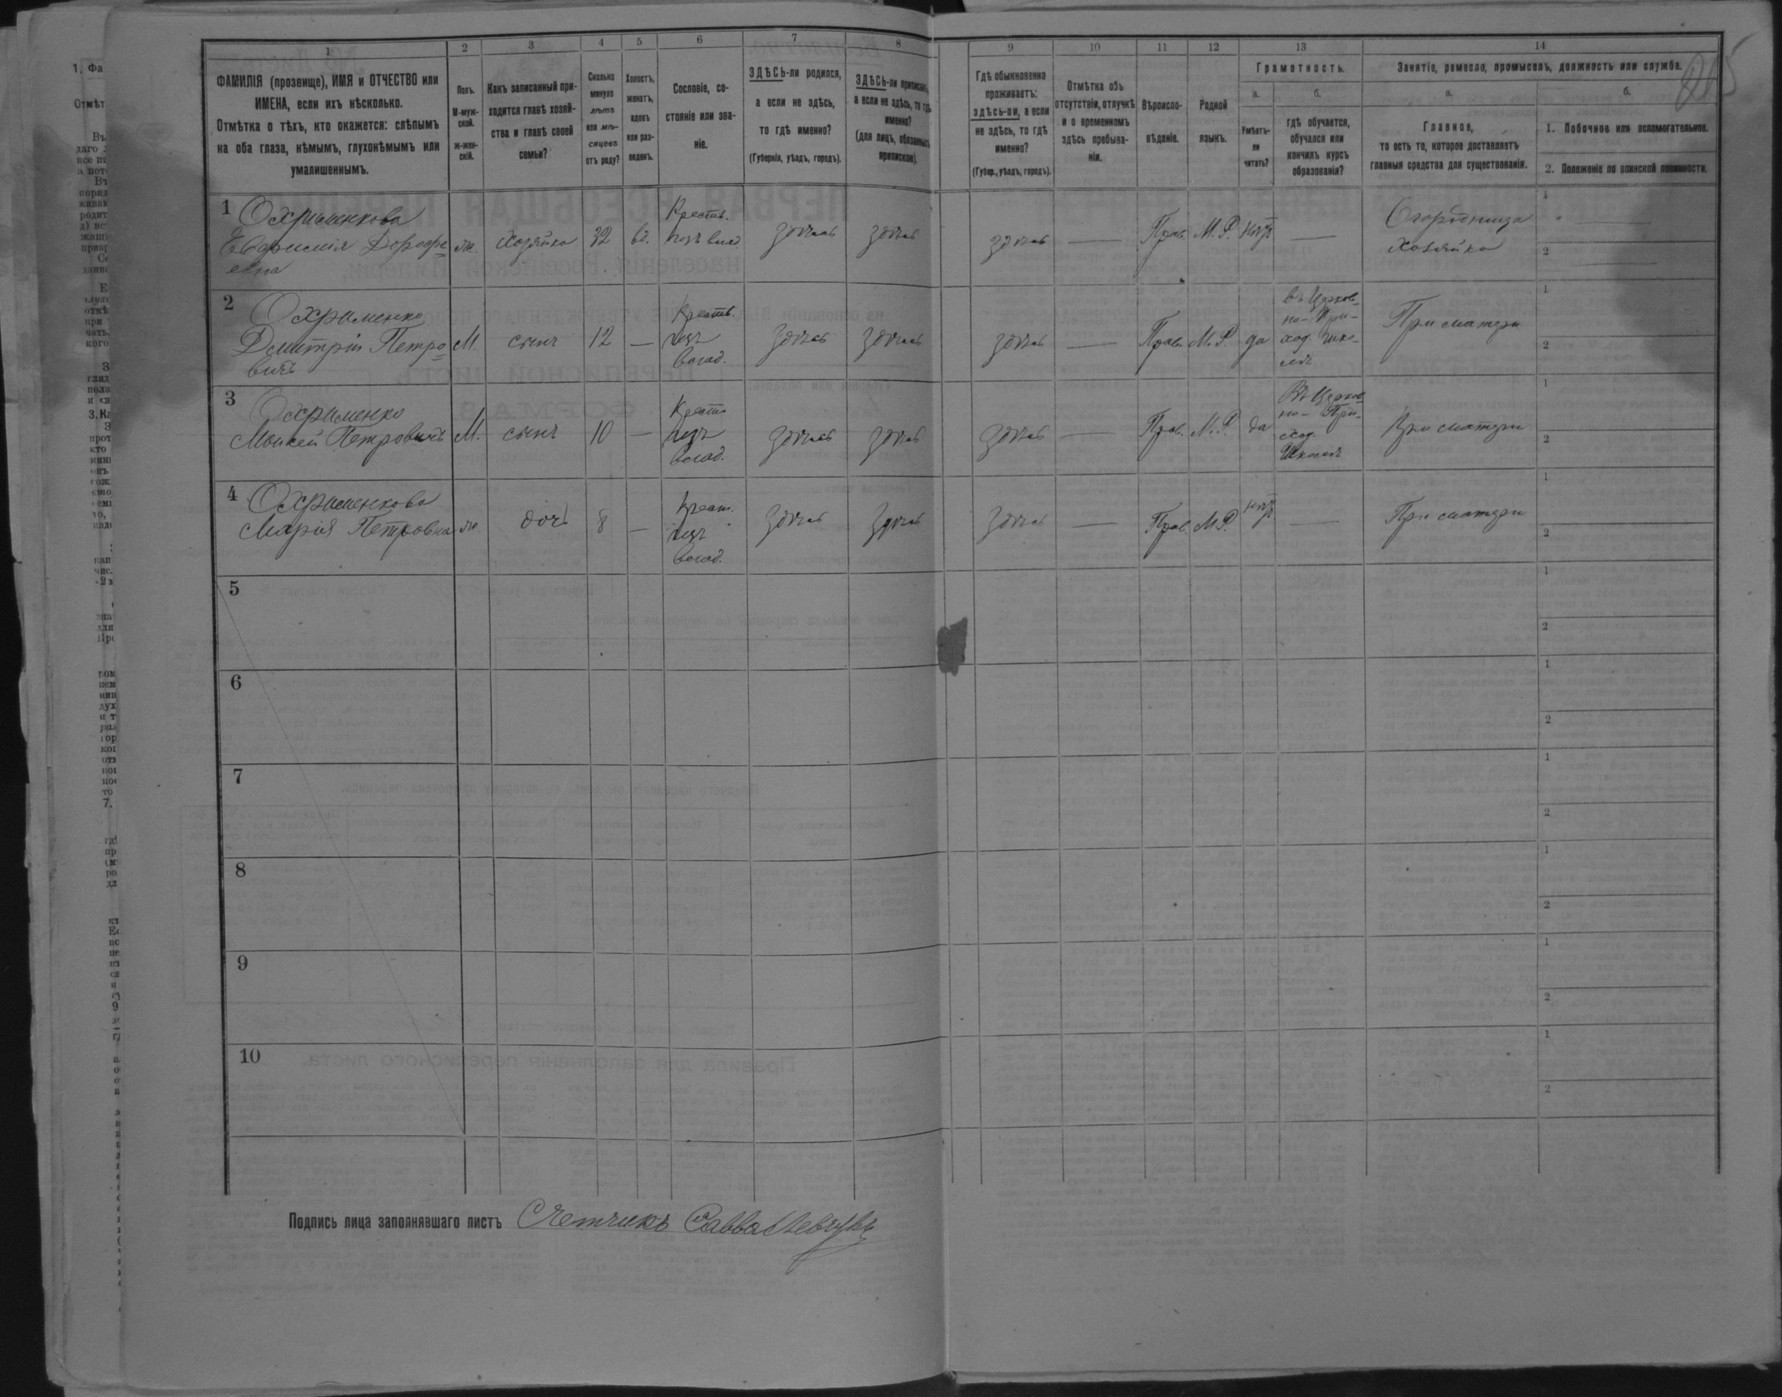 1
2
3
4
5
6
7
8
9
10
11
12
13
14
ФАМИЛІЯ (прозвище), ИМЯ и ОТЧЕСТВО или
ИМЕНА, если ихъ нѣсколько.
Отмѣтка о тѣхъ, кто окажется: слѣпымъ
на оба глаза, нѣмымъ, глухонѣмымъ или
умалишеннымъ.
Полъ.
М-муж-
ской.
ж-жен-
скій.
Какъ записанный при-
ходится главѣ хозяй-
ства и главѣ своей
семьи?
Сколько
минуло
лѣтъ
или мѣ-
сяцевъ
отъ роду?
Холостъ,
женатъ,
вдовъ
или раз-
веденъ.
Сословіе, со-
стояніе или зва-
ніе.
ЗДѢСЬ-ли родился,
а если не здѣсь,
то гдѣ именно?
(Губернія, уѣздъ, городъ).
ЗДѢСЬ-ли приписанъ,
а если не здѣсь, то гдѣ
именно?
(для лицъ, обязанныхъ
припискою).
Гдѣ обыкновенно
проживаетъ:
здѣсь-ли, а если
не здѣсь, то гдѣ
именно?
(Губер., уѣздъ, городъ).
Отмѣтка объ
отсутствіи, отлучкѣ
и о временномъ
здѣсь пребыва-
ніи.
Вѣроиспо-
вѣданіе.
Родной
языкъ.
Грамотность.
а.
Умѣетъ-
ли
читать?
б.
гдѣ обучается,
обучался или
кончилъ курсъ
образованія?
Занятіе, ремесло, промыселъ, должность или служба.
а.
Главное,
то есть то, которое доставляетъ
главныя средства для существованія.
б.
1. Побочное или вспомогательное.
2. Положеніе по воинской повинности.
1 Охрименкова
Евфимія Дорофе
евна
ж. хозяйка 32 вд.
Крестьян.
изъ влад.
здѣсь здѣсь здѣсь — Прав. М.Р. нѣтъ —
хозяйка
2 Охрименко
Дмитрій Петро
вичъ
М сынъ 12 —
Крестьян.
изъ
влад.
здѣсь здѣсь здѣсь — Прав. М.Р. да
въ Церков-
но-При-
ход. шко-
лѣ
При матери
3 Охрименко
Моисей Петровичъ
М. сынъ 10 —
Крестьян.
изъ
влад.
здѣсь здѣсь здѣсь — Прав. М.Р. да
Въ Церков
но-При-
ход.
Школѣ
При матери
4 Охрименкова
Марія Петровна
ж. дочь 8 —
Крестьян.
изъ
влад.
здѣсь здѣсь здѣсь — Прав. М.Р. нѣтъ —
При матери
5
6
7
8
9
10
Подпись лица заполнявшаго листъ Счетчикъ Савва